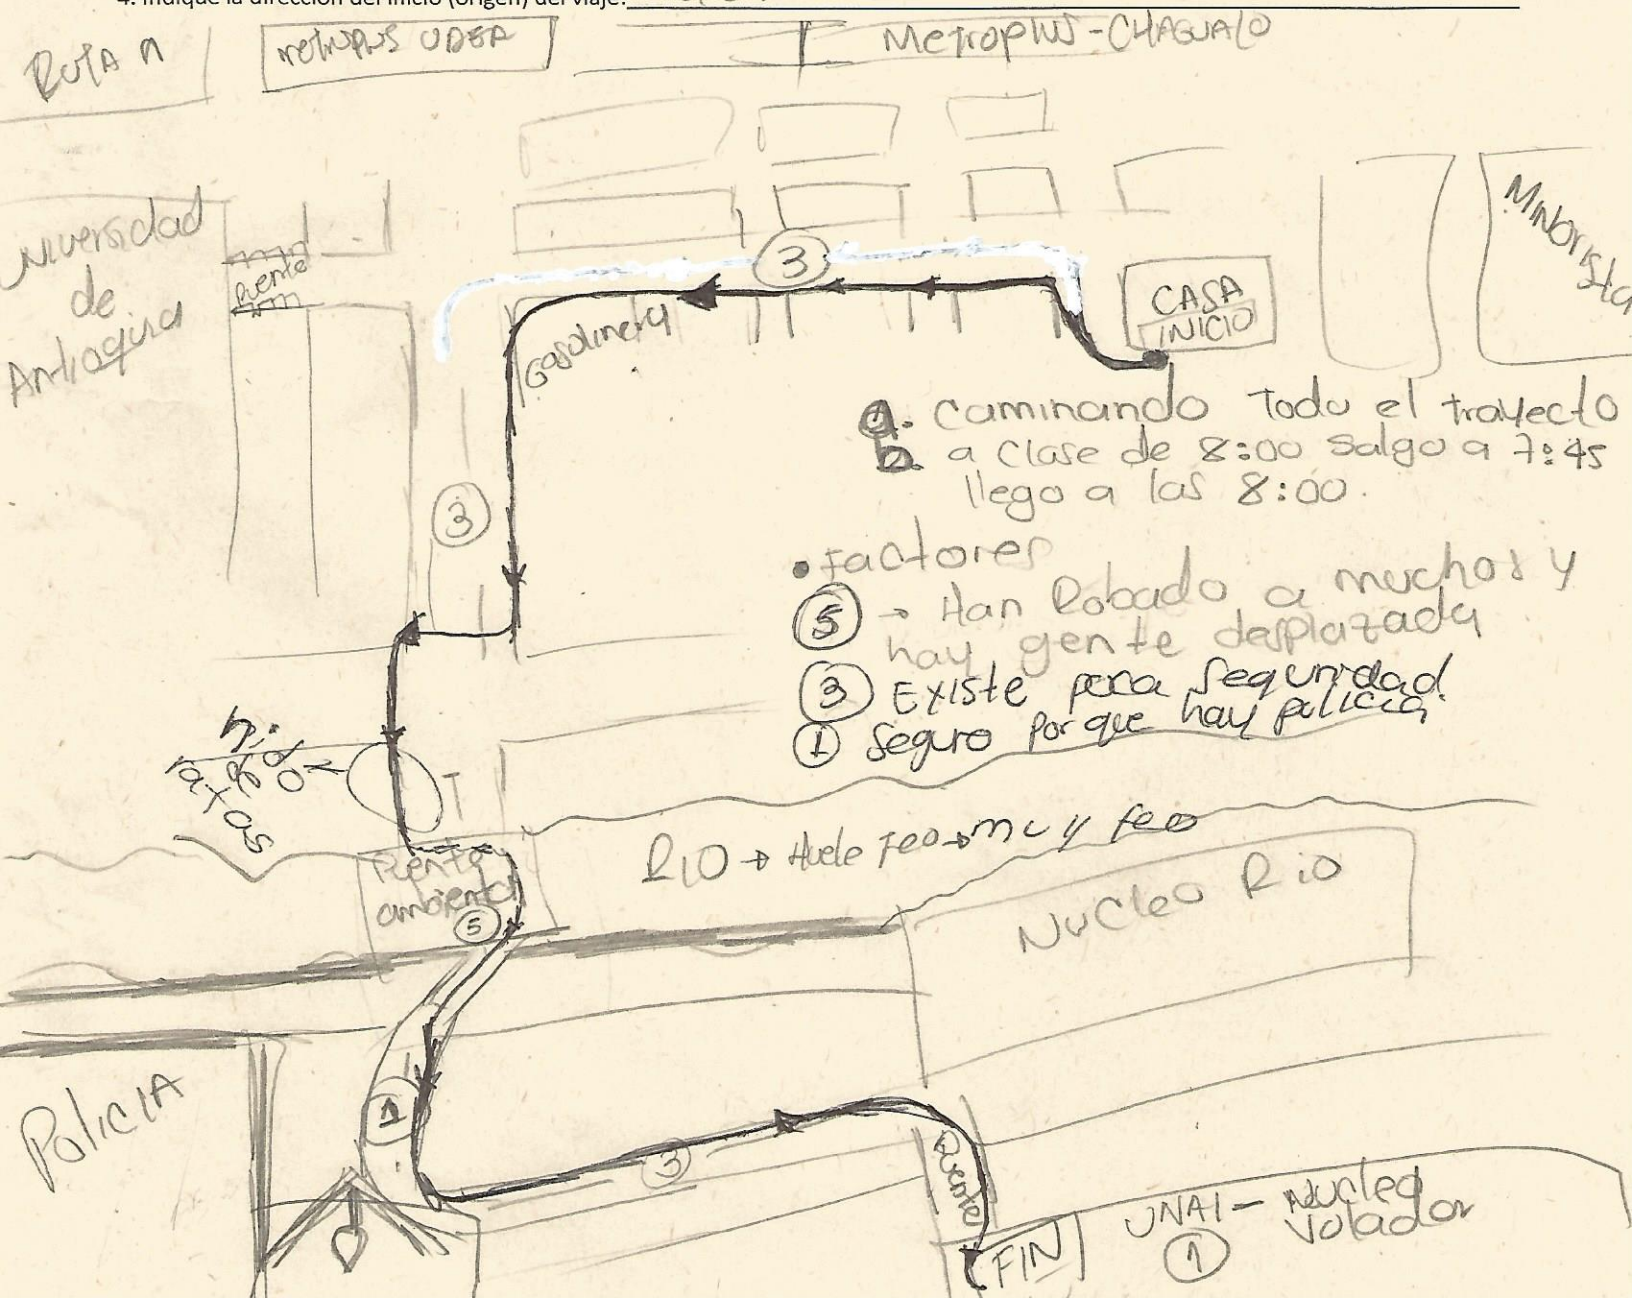 4. Indique la dirección del inicio (origen) del viaje:
RUTA N
METROPLUS UDEA
Metroplus-CHAGUALO
Universidad
de
Antioquia
Puente
3
CASA
INICIO
Minorista
Gasolinera
a. Caminando Todo el trayecto
b. a clase de 8:00 salgo a 7:45
llego a las 8:00.
3
• Factores
5 → Han Robado a muchos y
hay gente desplazada
3 Existe poca seguridad
1 Seguro porque hay policia
RIO → Huele Feo → muy feo
Puente
ambiental
5
Nucleo Rio
Policia
1
3
Puente
FIN
UNAl - Nucleo
Volador
1